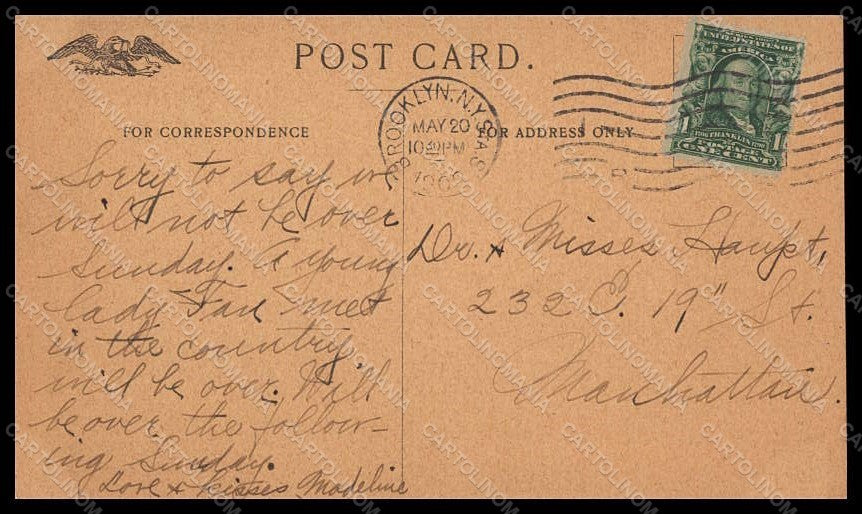 POST CARD.
FOR CORRESPONDENCE
FOR ADDRESS ONLY
BROOKLYN, N.Y.
MAY 20
PM
UNITED STATES OF
AMERICA
1 FRANKLIN 1
POSTAGE
ONE CENT
Sorry to say we
will not be over
Sunday. A young
lady Fan met
in the country
will be over. Will
be over the follow-
ing Sunday.
Love & kisses Madeline
Dr. & Misses Haupt,
232 E. 19" St.
Manhattan.
CARTOLINOMANIA